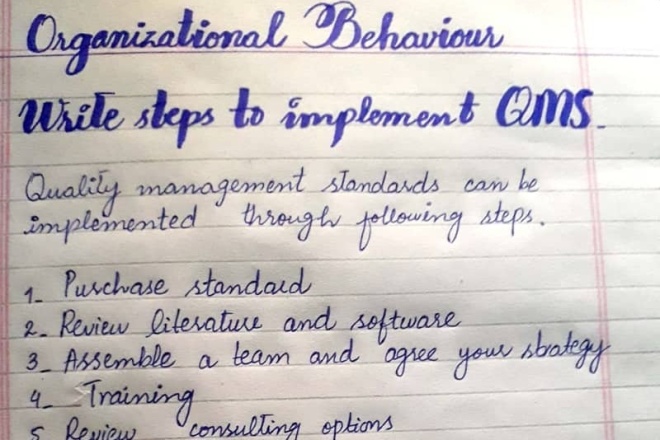 Organizational Behaviour
Write steps to implement QMS.
Quality management standards can be
implemented through following steps.
1_ Purchase standard
2_ Review literature and software
3_ Assemble a team and agree your strategy
4_ Training
5_ Review consulting options